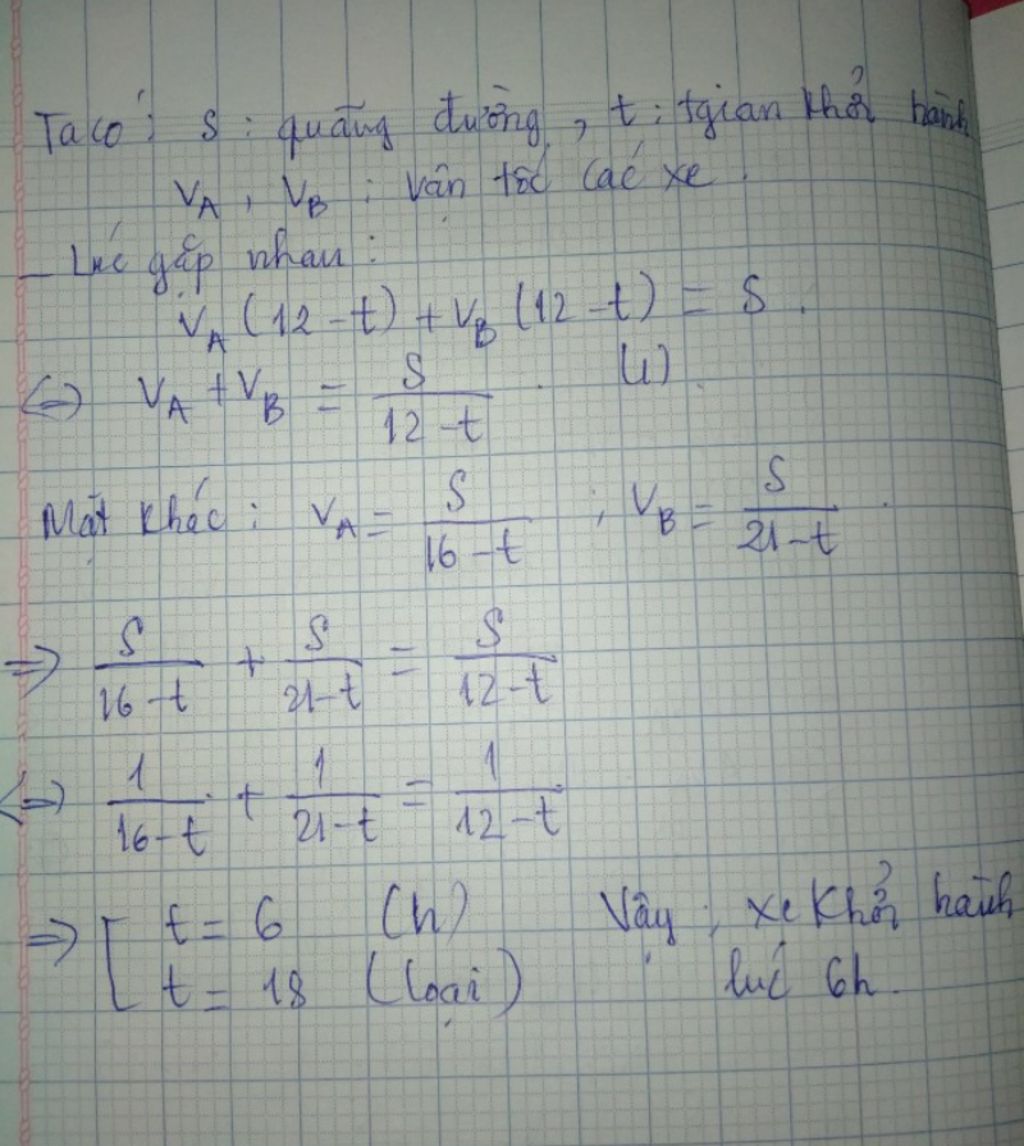 Ta có: S: quãng đường, t: tgian khởi hành
V_A, V_B: vận tốc các xe.
- Lúc gặp nhau:
V_A (12 - t) + V_B (12 - t) = S.
⇔ V_A + V_B = S/(12 - t). (1)
Mặt khác: V_A = S/(16 - t); V_B = S/(21 - t).
⇒ S/(16 - t) + S/(21 - t) = S/(12 - t)
⇔ 1/(16 - t) + 1/(21 - t) = 1/(12 - t)
⇒ [ t = 6 (h) Vậy; xe khởi hành
t = 18 (loại) lúc 6h.